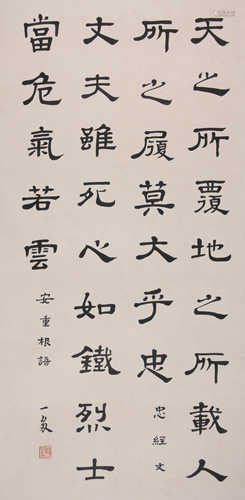 天之所覆地之所載人
所之履莫大乎忠
忠經文
丈夫雖死心如鐵烈士
當危氣若雲
安重根語